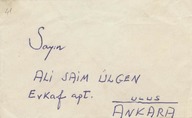 Sayın
ALİ SAİM ÜLGEN
Evkaf apt.
ULUS
ANKARA